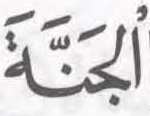 ٱلجَنَّةَ